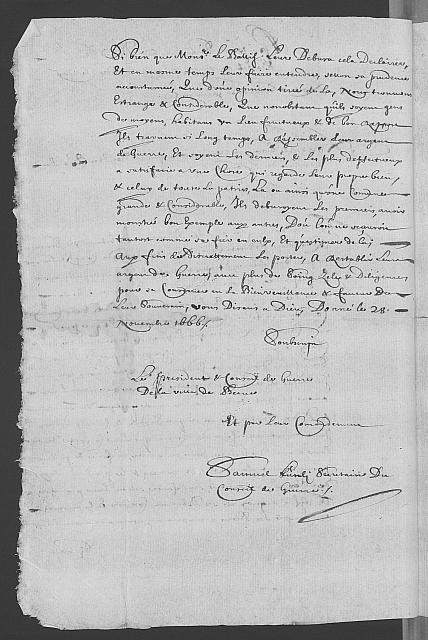 Si bien que Monsr. le Baillif Leur Debvra cela Declairer,
Et en mesme temps Leur faire entendre, selon sa prudence
accoustumée, Que d'une opinion tirée de la, Nous trouvons
Estrange & Considerable, Que nonobstant qu'ils soyent gens
de moyens, habitans un Lieu fructueux & de bon
Ils trainent si Long temps, A Rassembler Leur argent
de Guerre, Et soyent Les derniers, & Les plus deffectueux
a satisfaire a une Chose qui regarde Leur propre bien,
& celuy de toute la patrie, La ou ainsi qu'une Commune
grande & Considerable, Ils debvroyent Les premiers avoir
monstré bon Exemple aux autres, D'où l'on ne
tantost comme se fier en eulx, Et qu'estimer de la;
Aux fins de se disposer, A Restablir Leur
argent de Guerre, avec plus de Soing, Zele, & Diligence,
pour se Conserver en la Bienveuillance & faveur de
Leur Souverain, Vous Disans a Dieu, Donné le 28.
Novembre 1666.
Le President & Conseil de Guerre
De la ville de Berne
Et par Leur Commandement
Samuel Secretaire Du
Conseil de Guerre